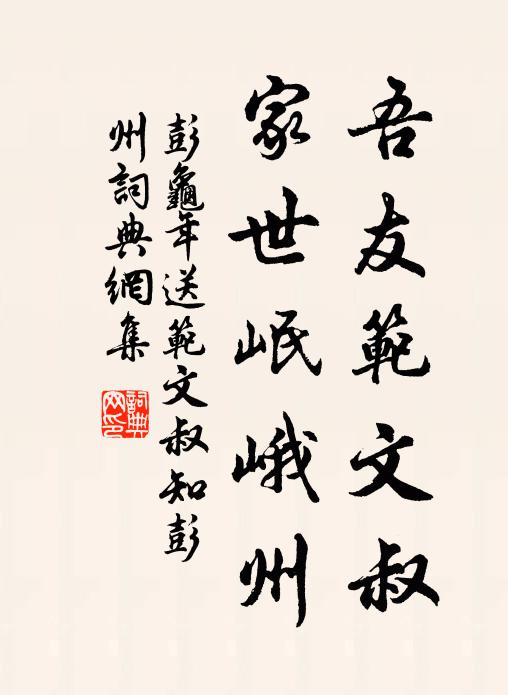 吾友範文叔
家世岷峨州
彭龜年送範文叔知彭
州詞典網集
詞典
网印